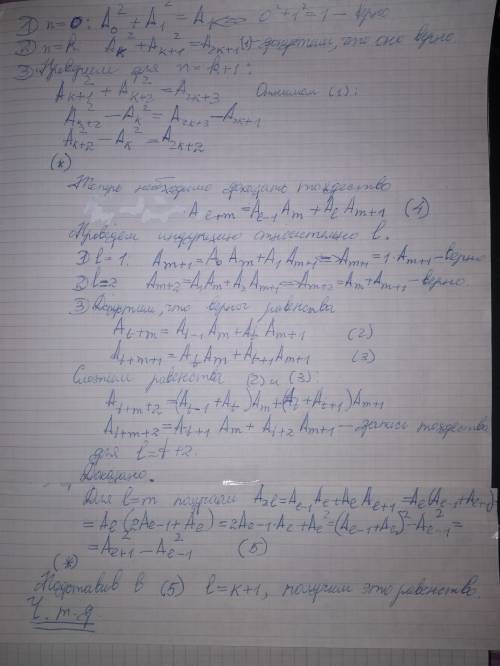 1) n=0: A₀² + A₁² = A₁ <=> 0²+1²=1 – верно
2) n=k. A_k² + A_{k+1}² = A_{2k+1} (1) – допустим, что оно верно.
3) Проверим для n=k+1:
A_{k+1}² + A_{k+2}² = A_{2k+3} Отнимем (1):
A_{k+2}² – A_k² = A_{2k+3} – A_{2k+1}
A_{k+2}² – A_k² = A_{2k+2}
(*)
Теперь необходимо доказать тождество
A_{l+m} = A_{l-1} A_m + A_l A_{m+1} (4)
Проведем индукцию относительно l.
1) l=1. A_{m+1} = A₀ A_m + A₁ A_{m+1} <=> A_{m+1} = 1·A_{m+1} – верно
2) l=2 A_{m+2} = A₁ A_m + A₂ A_{m+1} <=> A_{m+2} = A_m + A_{m+1} – верно.
3) Допустим, что верны равенства
A_{t+m} = A_{t-1} A_m + A_t A_{m+1} (2)
A_{t+m+1} = A_t A_m + A_{t+1} A_{m+1} (3)
Сложим равенства (2) и (3):
A_{t+m+2} = (A_{t-1} + A_t) A_m + (A_t + A_{t+1}) A_{m+1}
A_{t+m+2} = A_{t+1} A_m + A_{t+2} A_{m+1} – запись тождества
для l=t+2
Доказано.
Для l=m получим A_{2l} = A_{l-1} A_l + A_l A_{l+1} = A_l (A_{l-1} + A_{l+1}) =
= A_l (2A_{l-1} + A_l) = 2A_{l-1}·A_l + A_l² = (A_{l-1} + A_l)² – A_{l-1}² =
= A_{l+1}² – A_{l-1}² (5)
(*)
Подставив в (5) l=k+1, получим это равенство.
Ч.т.д